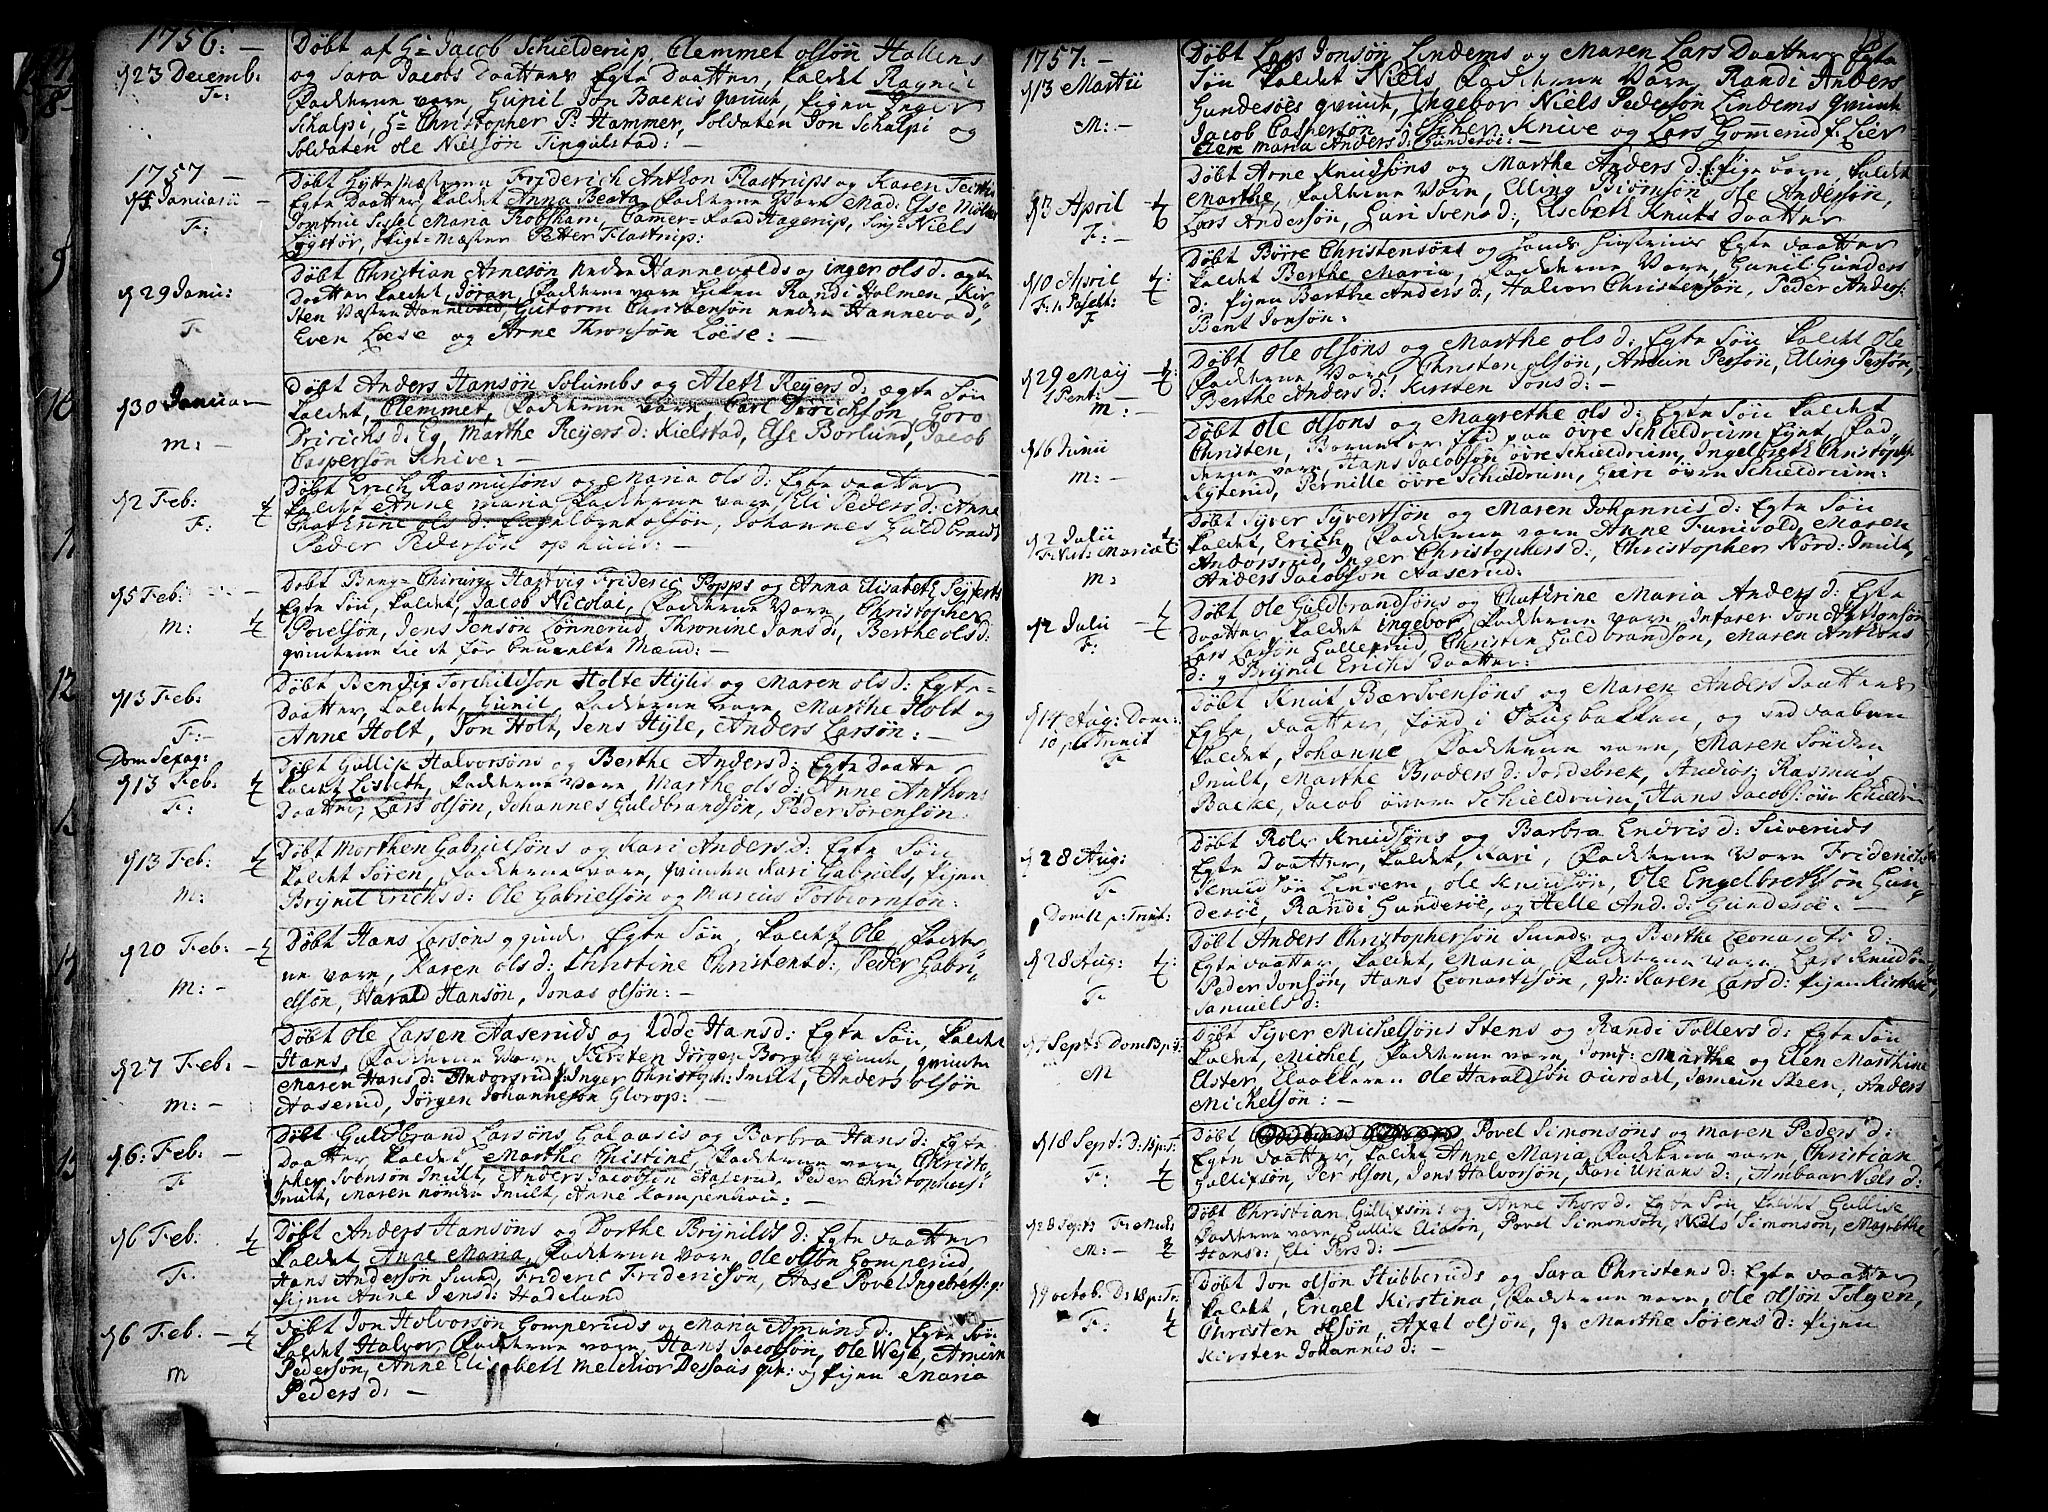 1756: —
d 23 Decemb:
F:
Døbt af Hr Jacob Schielderup, Clemmet olsøn Hallens
og Sara Jacobs Daatter Egte Daatter, kaldet Ragnil
Fadderne vare, Gunil Jon Backis qvinde, pigen Inger
Schalpi, Hr Christopher P: Hammer, Soldaten Jon Schalpi og
Soldaten ole Nielsøn Tingulstad: —
1757 —
d Januarii —
F:
Døbt Hytte Mæsterens Friderich Anthon Flastrups og Karen
Egte Daatter, kaldet Anna Beata, Fadderne vare Mad: Else
Jomfrue Sissel Maria Robsham, Camer=Raad Hagerup, Niels
Løgstør, Stigt=Mæster Petter Flastrup:
d 29 Janu:
F
Døbt Christian Arnesøn nedre Hannevolds og inger ols d. ægte
Daatter kaldet, Jøran, Fadderne vare Enken Randi Holmen, Kir-
sten Væstre Hannevold, Gutorm Christensøn nedre Hannevold,
Even Løese og Arne Thronsøn Løese: —
d 30 Januar
m: —
Døbt Anders Hansøn Solumbs og Aleth Reyers d: ægte Søn
kaldet, Clemmet, Fadderne Vare, Carl Dirichsøn, Goro
Dirichs d: Eg, Marthe Reyers d: Kielstad, Else Borlund, Jacob
Caspersøn Knive: —
d 2 Feb:
F:
Døbt Erich Rasmusøns og Maria ols d: Egte Daatter
kaldet Anne maria Fadderne vare, Eli Peders d: Anne
Chatrine ols d: Engelbret olsøn, Johannes Guldbrands
Peder Pedersøn ophuus: —
d 5 Feb:
m:
Døbt Berg=Chirurgi Hartvig Frideric Popps og Anna Elisabeth Seiferts
Egte Søn, kaldet, Jacob Nicolai, Fadderne Vare, Christopher
Povelsøn, Jens Jensøn Lønnerud, Thronine Jans d:, Berthe ols d:
qvinderne til de før benævnte Mænd: —
d 13 Feb:
F: —
Døbt Bendix Torchildsøn Holte Hyles og Maren ols d: Egte
Daatter, kaldet, Gunil, Fadderne vare, Marthe Holt og
Anne Holt, Jon Holt, Jens Hyle, Anders Larsøn: —
Dom Sexag:
d 13 Feb.
F:
Døbt Gullik Halvorsøns og Berthe Anders d: Egte Daatter
kaldet Lisbeth, Fadderne vare, Marthe ols d: Anne Anthons
Daatter, Lars olsøn, Johannes Guldbrandsøn, Peder Sørensøn:
d 13 Feb.
M:
Døbt Morthen Gabrielsøns og Kari Anders d: Egte Søn
kaldet Søren, Fadderne vare, qvinden Kari Gabriels, pigen
Brynil Erichs d: Ole Gabrielsøn og Marcus Torbiørnsøn:
d 20 Feb: —
M: —
Døbt Hans Larsøns Egte Søn, kaldet Ole Fadder-
ne vare, Karen ols d: Christine Christens d:, Peder Gabri-
elsøn, Harald Hansøn, Jonas olsøn: —
d 27 Feb: —
m: —
Døbt Ole Larsen Aaseruds og Edde Hans d: Egte Søn, kaldet
Hans, Fadderne vare, Kirsten Jørgen Borgis qvinde, qvinde
Maren Hans d: Andorsrud, Inger Christoph: Jmilt, Anders olsøn
Aaserud, Jørgen Johannesøn Glorop: —
d 6: Feb: —
F
Døbt Guldbrand Larsøns Galaasis og Barbra Hans d: Egte
Daatter kaldet Marthe Christine, Fadderne vare, Christo-
pher Svensøn Jmilt, Anders Jacobsøn Aaserud, Peder Christophersø
Jmilt, Maren nordre Jmilt, Anne Kompenhau: —
d 6 Feb:
F:
Døbt Anders Hansøns og Dorthe Brynilds d: Egte Daatter
kaldet, Anne Maria, Fadderne Vare, Ole olsøn Gomperud,
Hans Andersøn Sund, Frideric Fridericsøn, Aase Povel Ingebretts q:
pigen Anne Jens d: Hadeland
d 6 Feb. —
M
Døbt Jon Halvorsøn Gomperuds og Maria Amunds d: Egte Søn
kaldet, Halvor, Fadderne vare, Hans Jacobsøn, Ole Weje, Amun
Pedersøn, Anne Elisabeth Melchior Dessaus q: og pigen Maria
Peders d: —
18
1757: —
d 13 Martii
M: —
Døbt Lars Jonsøn Lindems og Maren Lars Daatter Egte
Søn kaldet Niels, Fadderne Vare, Randi Anders
Gundesøes qvinde, Ingebor Niels Pedersøn Lindems qvinde
Jacob Caspersøn Knive og Lars Gomerud f: Lier
Elen maria Anders d: Gundesøe: —
d 3 April
F: —
Døbt Arne Knudsøns og Marthe Anders d: pige barn, kaldet
Marthe, Fadderne Vare, Elling Biørnsøn, ole Andersøn,
Lars Andersøn, Guri Svens d:, Elsebeth Knuts Daatter
d 10 April
F: 1 Pasch:
F
Døbt Børre Christensøns og hands Hustrues Egte Daatter
kaldet Berthe Maria, Fadderne Vare, Gunil Gunders
d: pigen Berthe Anders d:, Halvor Christensøn, Peder Anders:
Bent Jonsøn:
d 29 Maij
1 Pent: —
m: —
Døbt Ole Olsøns og Marthe ols d: Egte Søn kaldet Ole
Fadderne Vare, Christen olsøn, Amun Persøn, Elling Persøn,
Berthe Anders d: Kirsten Jons d: —
d 16 Junii
m: —
Døbt Ole Olsøns og Magrethe ols d: Egte Søn kaldet
Christen, Barnet er fød paa øvre Schieldrum Eyet, Fad-
derne vare, Hans Jacobsøn øvre Schieldrum, Ingelbreth Christoph
Ryterud, Pernille øvre Schieldrum, Guri øvre Schieldrum:
d 2 Julii
F: Visit: Mariæ
m:
Døbt Syver Syvertsøn og Maren Johannis d: Egte Søn
kaldet, Erich, Fadderne vare Anne Funisold, Maren
Andorsrud, Inger Christophers d:, Christopher Nord: Jmilt,
Anders Jacobsøn Aaserud:
d 2 Julii
F:
Døbt Ole Guldbrandsøns og Chathrine Maria Anders d: Egte
Daatter, kaldet Ingebor, Fadderne vare, Jon
Lars Larsøn Gulliksrud, Christen Guldbrandsøn, Maren Anthons
d: og Brynil Erichs Daatter:
d 14 Aug: Dom:
10 p: Trinit
F
Døbt Knut Bærsvensøns og Maren Anders Daatters
Egte Daatter, fød i Haugbakken, og ved daaben
kaldet, Johanne, Fadderne vare, Maren Sønden
Jmilt, Marthe Braders d: Jordebrek, Rasmus
Backe, Jacob øvere Schieldrum, Hans Jacobs: øvr Schieldr
d 28 Aug:
F
Dom 12 p: Trinit:
Døbt Rolv Knudsøns og Barbra Endris d: Suveruds
Egte Daatter, kaldet, Kari, Fadderne Vare Friderich
Knudsøn Linsem, ole Knudsøn, Ole Engelbrethsøn Gun-
desøe, Randi Gundesøe, og Helle And. d: Gundesøe: —
d 28 Aug:
F
Døbt Anders Christophersøn Sunds og Berthe Leonardts d:
Egte Daatter, kaldet, Maria, Fadderne vare, Lars Knudsøn
Peder Jonsøn, Hans Leonartsøn, q: Karen Lars d: pigen Kirsten
Samuels d:
d Sept: Dom 13 p: T.
M
Døbt Syver Michelsøns Stens og Randi Tollers d: Egte Søn
kaldet, Michel, Fadderne vare, Jomf: Marthe og Elen Marthine
Elster, Klokkeren Ole Haraldsøn ourdael, Steen, Anders
Michelsøn: —
d 18 Sept: D: 15 p: T.
F:
Døbt Povel Simonsøns og maren Peders d:
Egte Daatter, kaldet Anne Maria Fadderne vare, Christian
Gulliksøn, Per olsøn, Jens Halvorsøn, Kari Urians d:, Ambaar Niels d:
d 28 Septb F: Mich:
M: —
Døbt Christian Gulliksøn: og Anne Thors d: Egte Søn, kaldet Gullik
Fadderne vare, Gullik Eliasøn, Povel Simonsøn, Niels Simonsøn, Magrethe
Hans d: Eli Pers d: —
d 9 octob. D: 18 p: Tr:
F:
Døbt Jon olsøn Stubberuds og Sara Christens d: Egte Daatter
kaldet, Engel Kirstina, Fadderne vare, Ole olsøn Tolgen,
Christen olsøn, Axel olsøn, q: Marthe Sørens d: pigen
Kirsten Johannis d: —